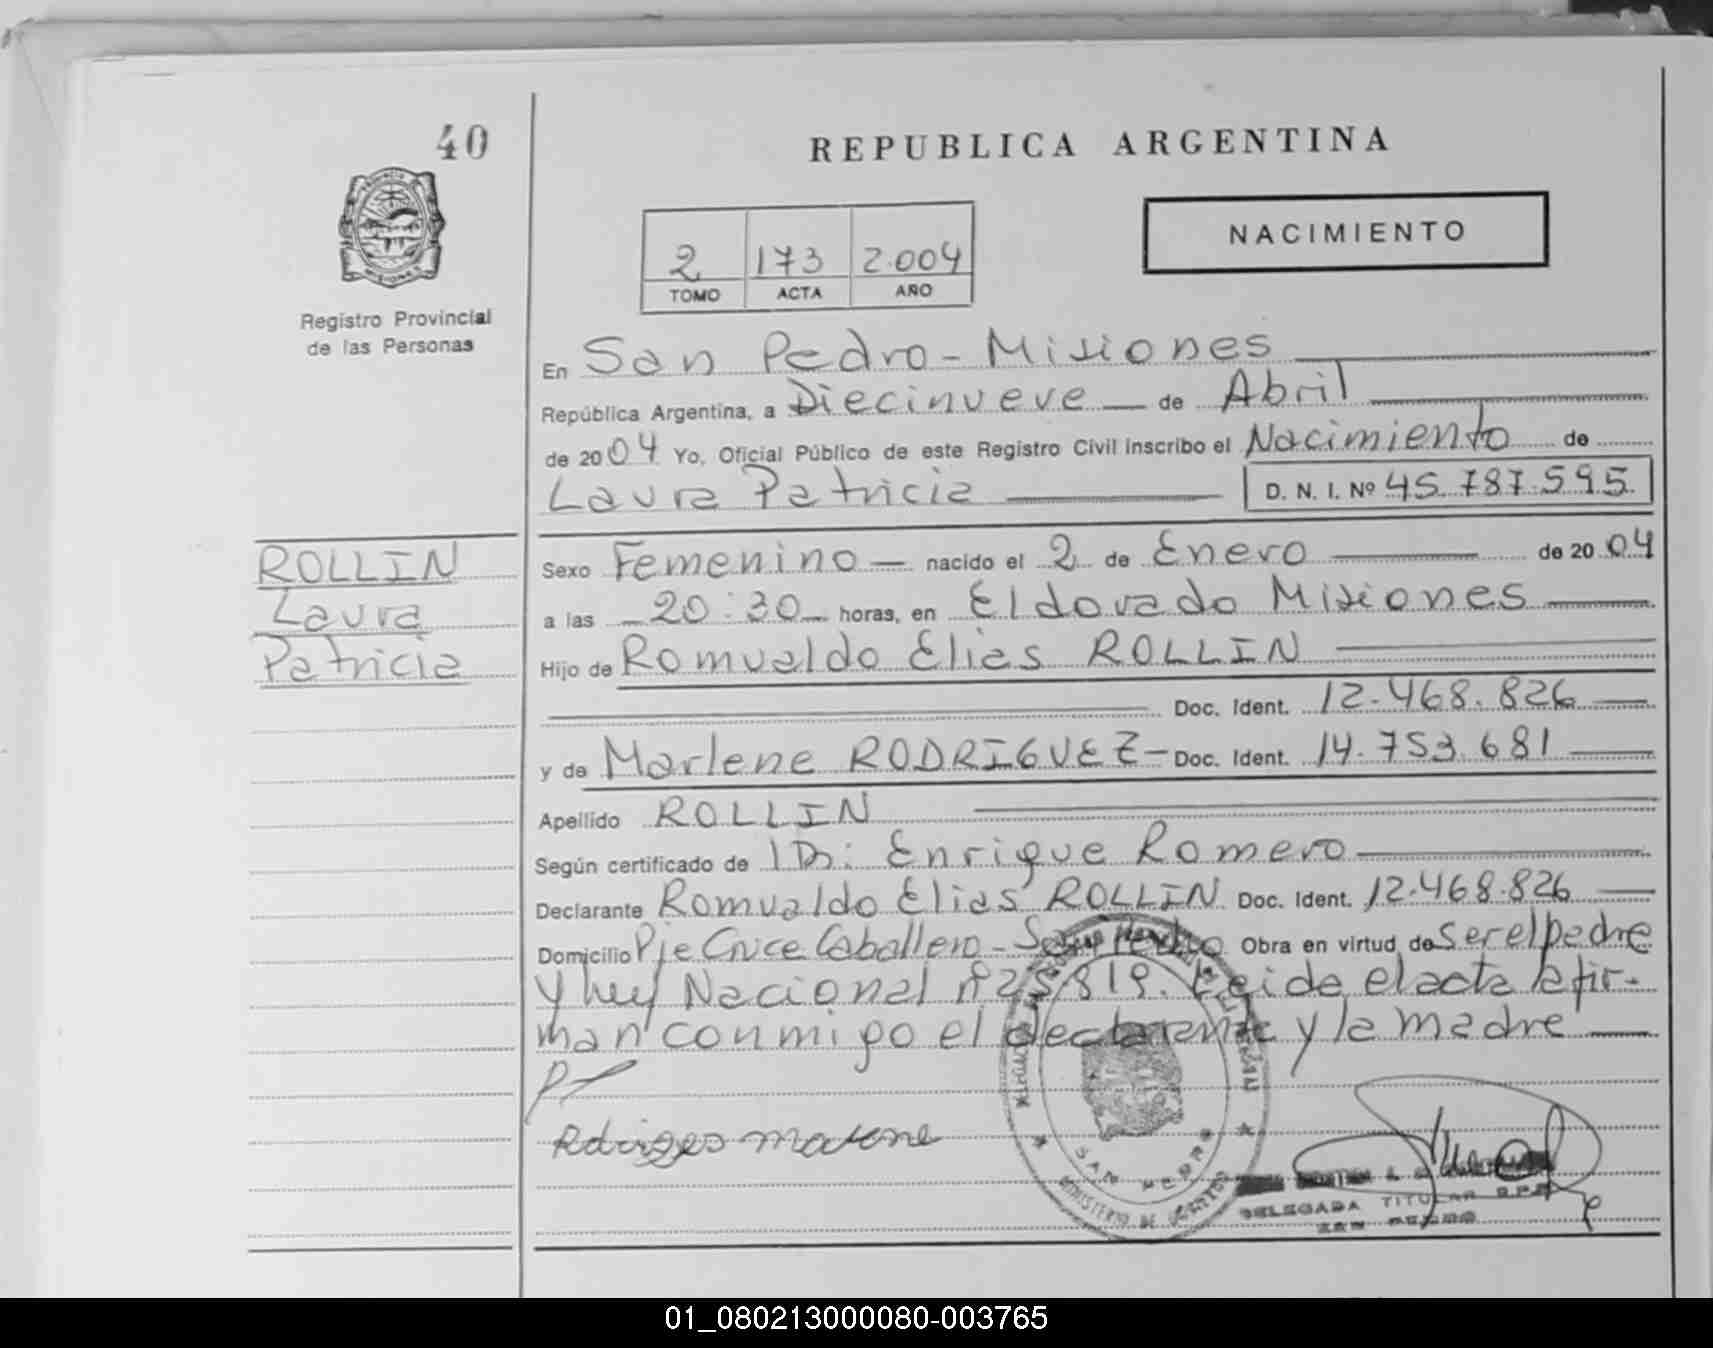 40
REPUBLICA ARGENTINA
NACIMIENTO
2 173 2.004
TOMO ACTA AÑO
Registro Provincial
de las Personas
En San Pedro - Misiones
República Argentina, a Diecinueve de Abril
de 2004 Yo, Oficial Público de este Registro Civil inscribo el Nacimiento de
Laura Patricia D. N. I. Nº 45.787.595.
ROLLIN
Laura
Patricia
Sexo Femenino nacido el 2 de Enero de 2004
a las 20:30 horas, en Eldorado Misiones
Hijo de Romualdo Elias ROLLIN
Doc. Ident. 12.468.826
y de Marlene RODRIGUEZ - Doc. Ident. 14.753.681
Apellido ROLLIN
Según certificado de Enrique Romero
Declarante Romualdo Elias ROLLIN Doc. Ident. 12.468.826
Domicilio Pje Cruce Caballero - San Pedro Obra en virtud de ser el padre
y ley Nacional 25.819. Leida el acta la fir-
man conmigo el declarante y la madre
SAN PEDRO
MINISTERIO DE GOBIERNO
DELEGADA TITULAR R.P.P.
SAN PEDRO
01_080213000080-003765